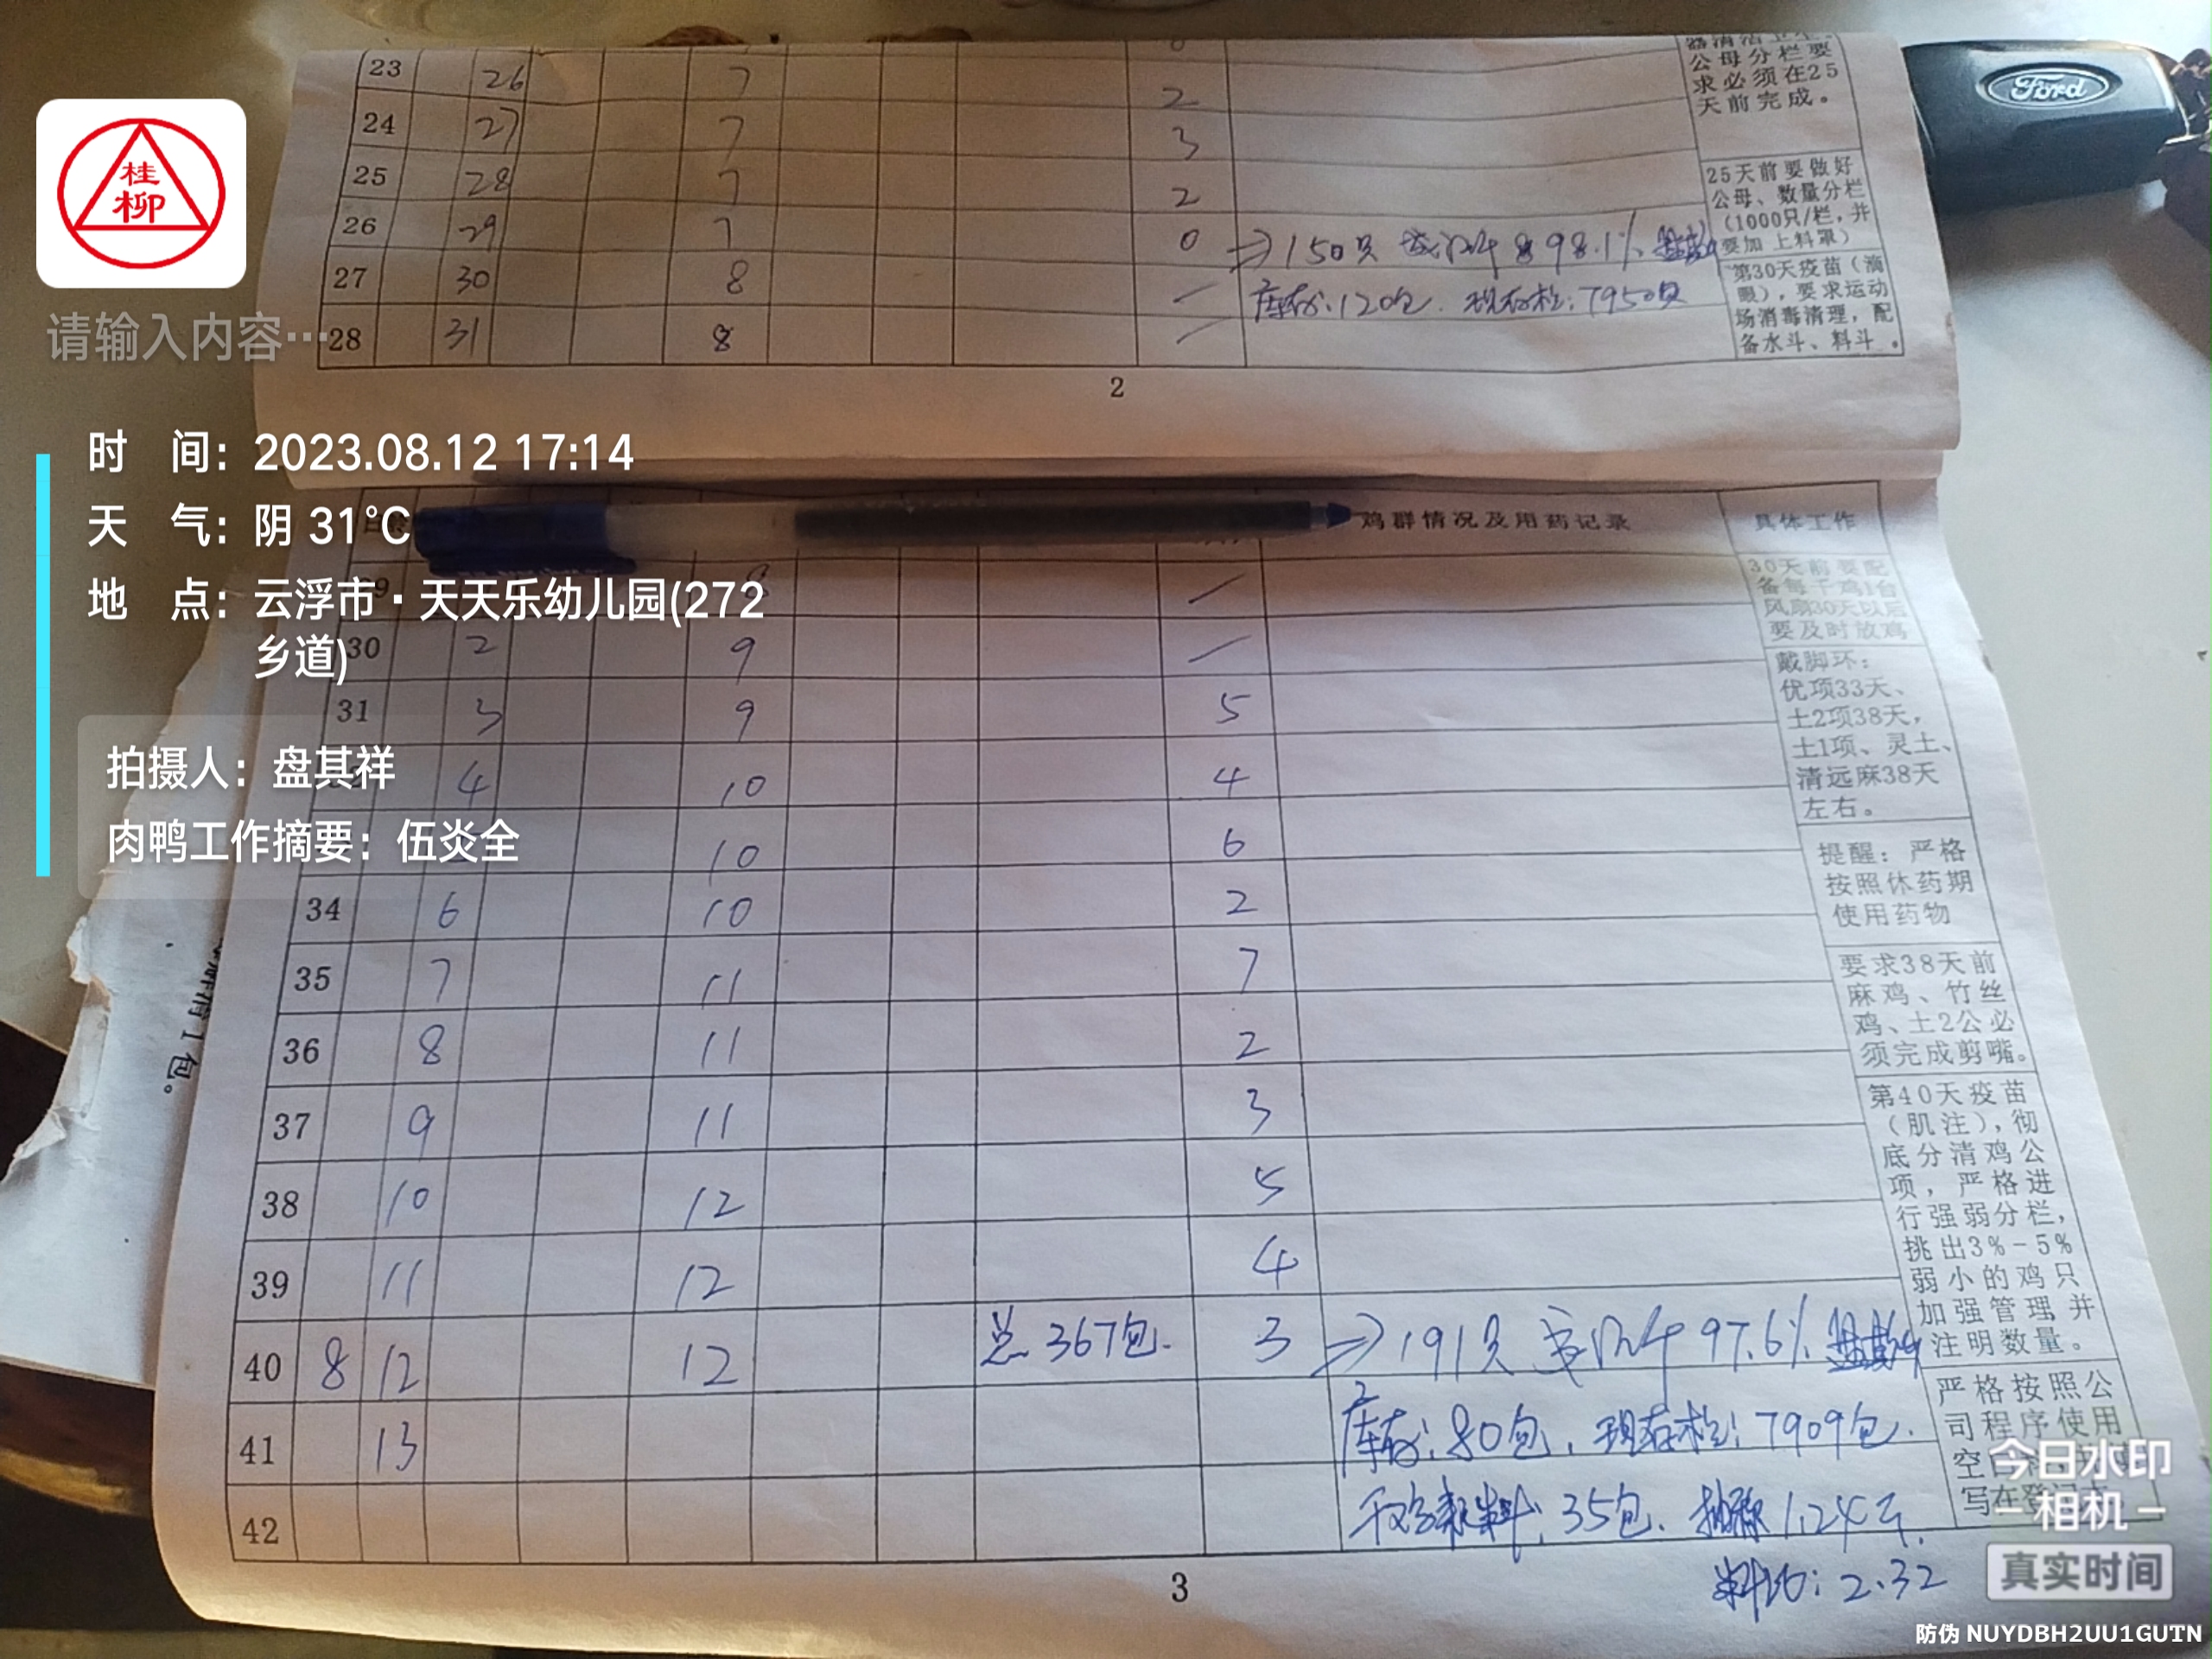 桂
柳
请输入内容…
时 间：2023.08.12 17:14
天 气：阴 31°C
地 点：云浮市·天天乐幼儿园(272
乡道)
拍摄人：盘其祥
肉鸭工作摘要：伍炎全
Ford
23 26 7 2
24 27 7 3
25 28 7 2
26 29 7 0 ⇒150只 成活率 98.1%
27 30 8 / 库存：120包. 现存栏：7950只
28 31 8 /
公母分栏要
求必须在25
天前完成。
25天前要做好
公母、数量分栏
(1000只/栏，并
要加 上料罩)
第30天疫苗（滴
眼），要求运动
场消毒清理，配
备水斗、料斗。
2
鸡群情况及用药记录 具体工作
9 /
30 2 9 /
31 3 9 5
4 10 4
10 6
34 6 10 2
35 7 11 7
36 8 11 2
37 9 11 3
38 10 12 5
39 11 12 4
40 8 12 12 总 367包. 3 ⇒191只 成活率 97.6%
41 13 库存：80包，现存栏：7909包.
42 千只耗料：35包. 抽称 1.24斤.
料比：2.32
30天前要配
备每千鸡1台
风扇30天以后
要及时放鸡
戴脚环：
优项33天、
土2项38天，
土1项、灵土、
清远麻38天
左右。
提醒：严格
按照休药期
使用药物
要求38天前
麻鸡、竹丝
鸡、土2公必
须完成剪嘴。
第40天疫苗
（肌注），彻
底分清鸡公
项，严格进
行强弱分栏，
挑出3%-5%
弱小的鸡只
加强管理并
注明数量。
严格按照公
司程序使用
空白
写在登记
3
1包。
今日水印
相机
真实时间
防伪 NUYDBH2UU1GUTN